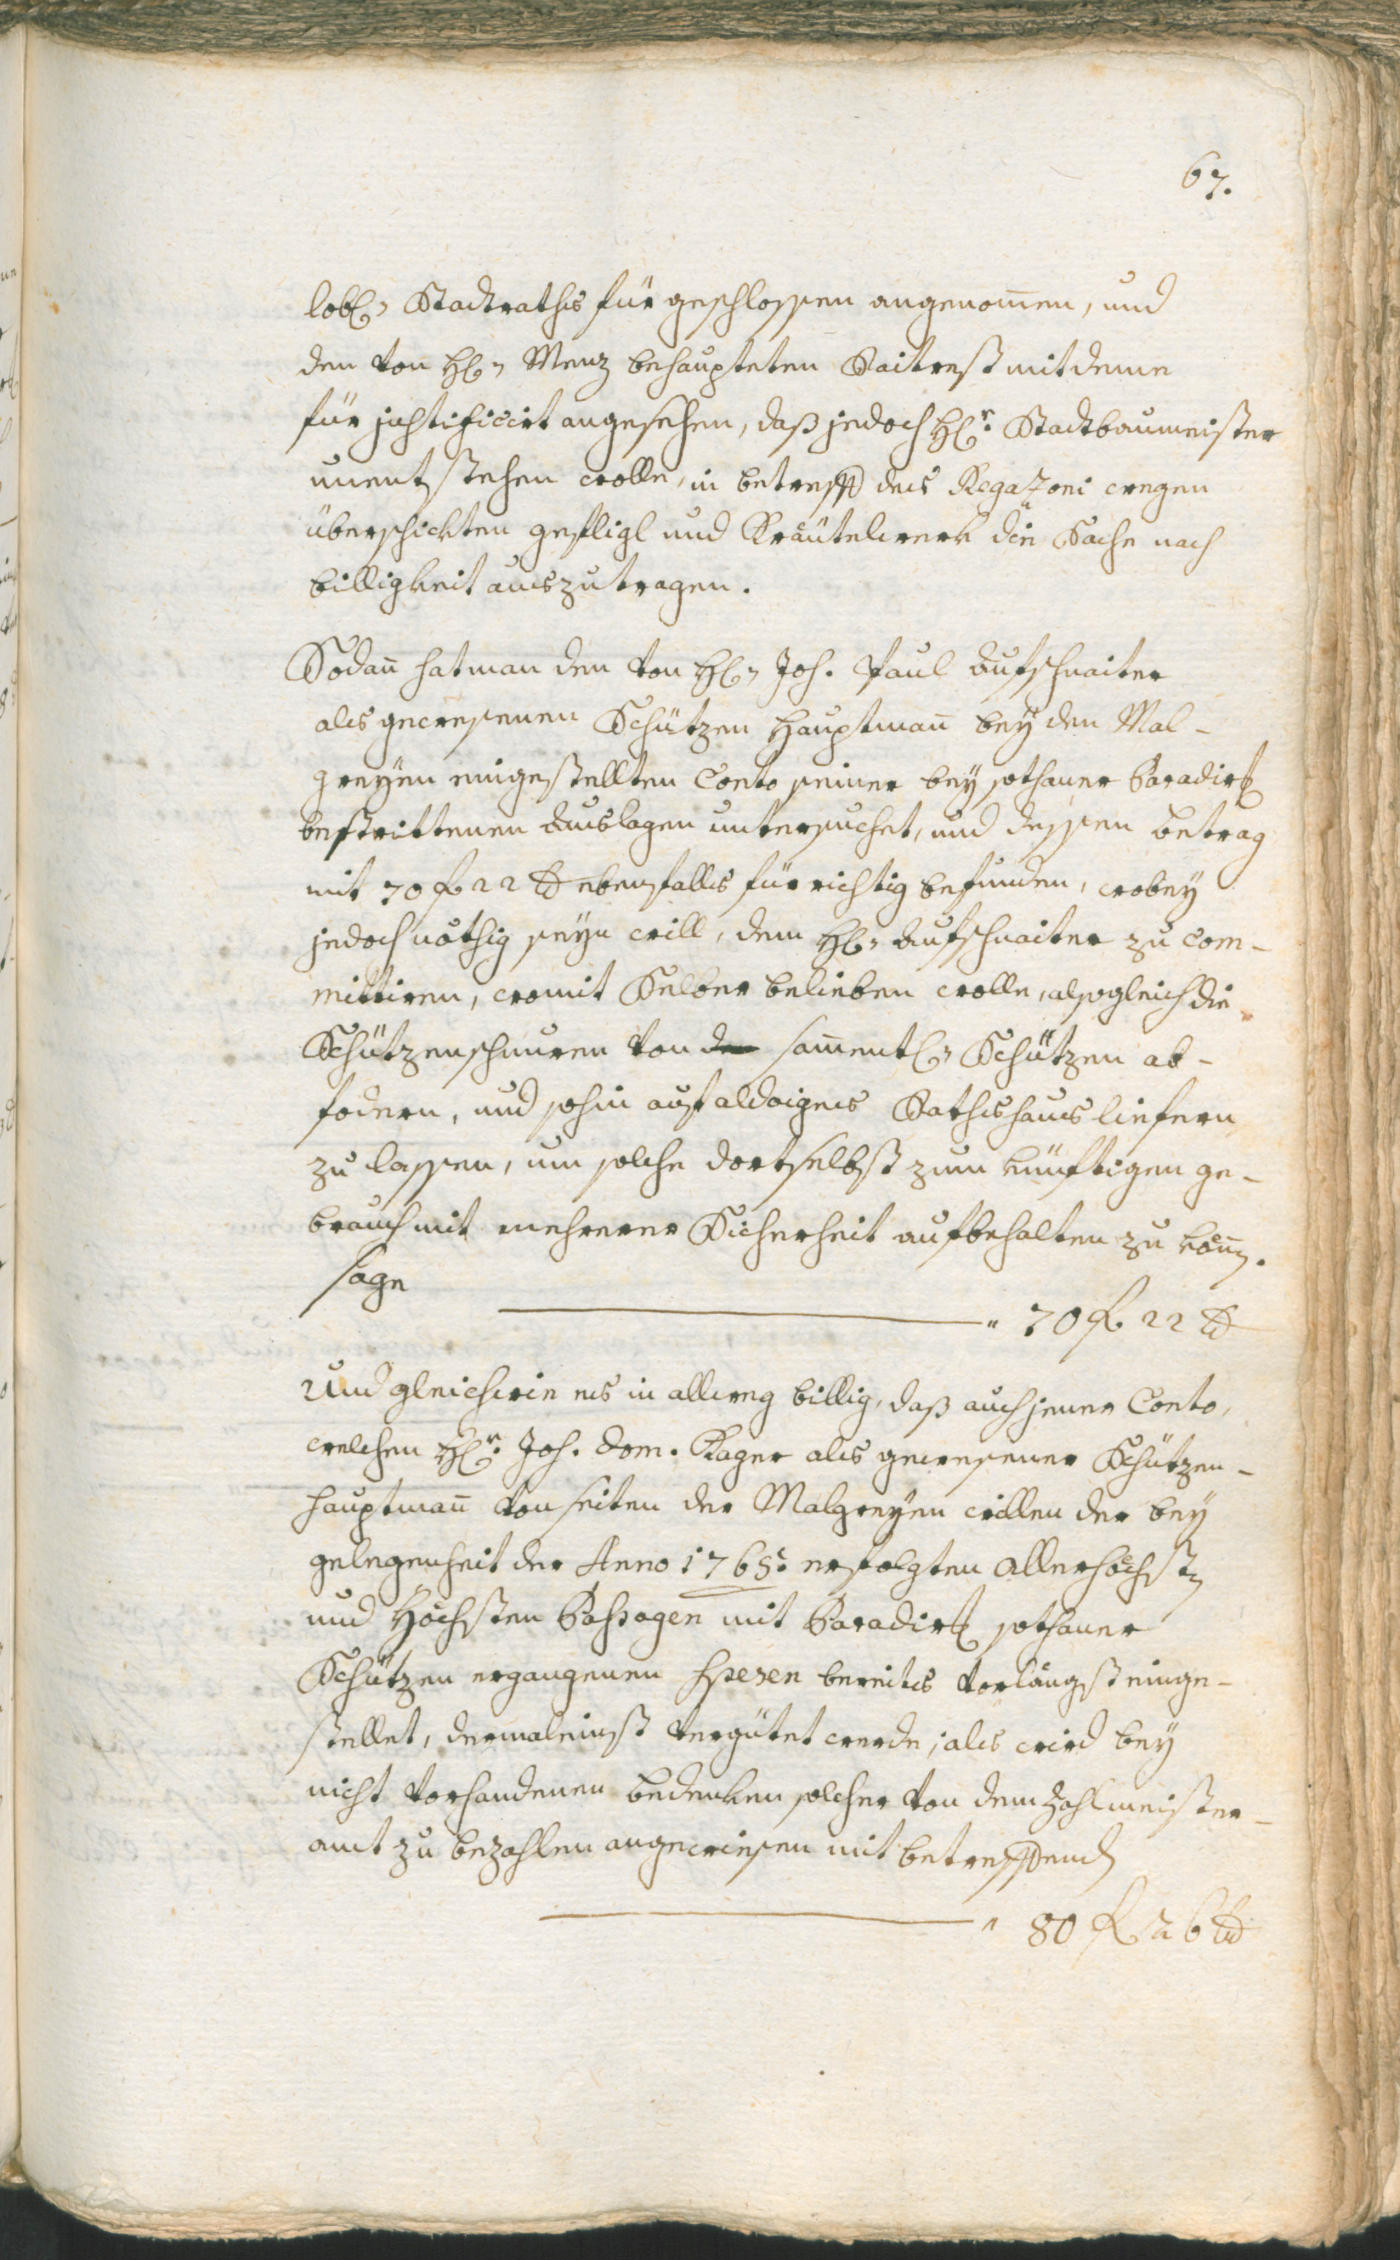 67.
löbl: Stadtraths für geschlossen angenom̅en, und
den von H: Menz behaupteten Raitrest mit deme
für justificirt angesehen, daß jedoch H:r Stadtbaumeister
unentstehen wolle, in betreff des Regazoni wegen
überschickten gefligl und Kräutelwerk die Sache nach
billigkeit auszutragen.
Sodan̅ hat man den von H: Joh. Paul Aufschnaiter
als gewesenen Schützen Hauptman̅ bey den Mal-
greyen eingestellten Conto seiner bey sothaner Paradirg
bestrittenen Auslagen untersuchet, und dessen betrag
mit 70 f 22 xr ebenfalls für richtig befunden, wobey
jedoch nöthig seyn will, dem H: Aufschnaiter zu com-
mittiren, womit Selber belieben wolle, alsogleich die
Schützenschnuren von sam̅entl: Schützen ab-
fodern, und sohin auf aldaiges Rathshaus liefern
zu lassen, um solche dortselbst zum künftigen ge-
brauch mit mehrerer Sicherheit aufbehalten zu kön̅en.
sage
" 70 f. 22 xr
Und gleichwie es in allweg billig, daß auch jener Conto,
welchen H:r Joh. Dom. Kager als gewesener Schützen-
hauptman̅ von seiten der Malgreyen willen der bey
gelegenheit der Anno 1765: erfolgten Allerhöchsten
und Höchsten Passagen mit Paradirg sothaner
Schützen ergangenen Spesen bereits vorlängst einge-
stellet, dermaleinst vergütet werde; als wird bey
nicht vorhandenen bedenken solcher von dem Zahlmeister-
amt zu bezahlen angewiesen mit betreffend
" 80 f 26 xr